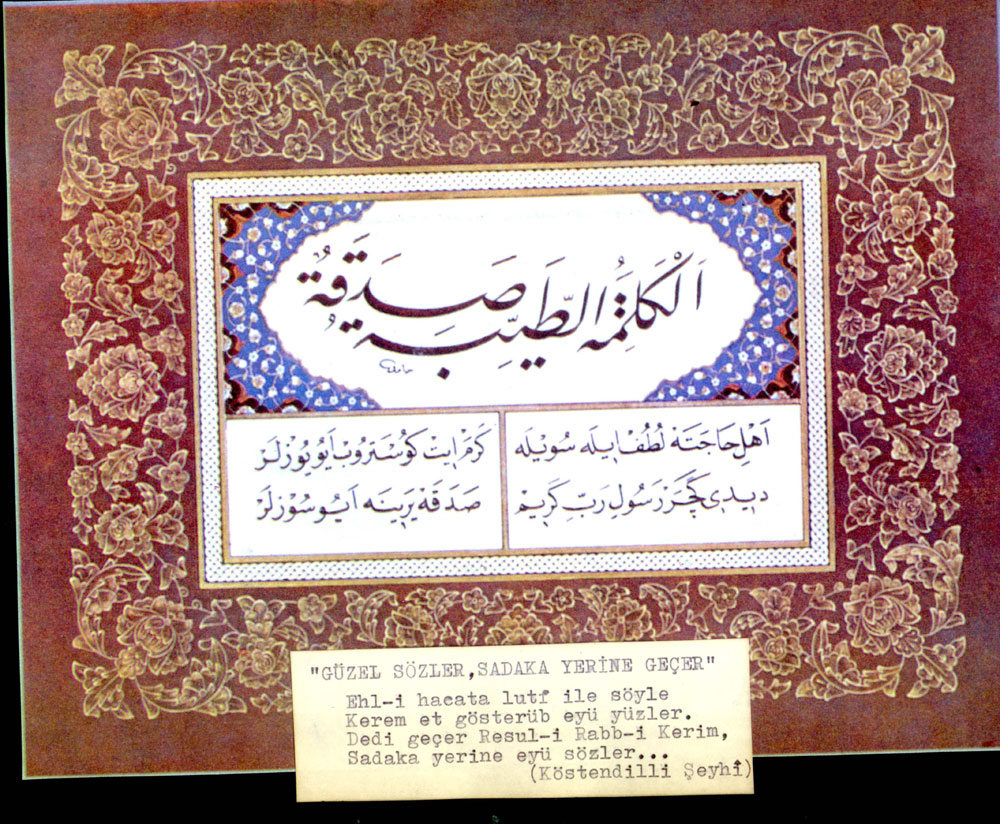 اَلْكَلِمَةُ الطَّيِّبَةُ صَدَقَةٌ
اَهْلِ حَاجَتَهْ لُطُفْ اِيلَه سُوَيْلَه
كَرَمْ اِيتْ كُوسْتَرُوبْ اَيُو يُوزْلَرْ
دِيدِى كَچَرْ رَسُولِ رَبِّ كَرِيمْ
صَدَقَهْ يَرِينَه اَيُو سُوزْلَرْ
"GÜZEL SÖZLER,SADAKA YERİNE GEÇER"
Ehl-i hacata lutf ile söyle
Kerem et gösterüb eyü yüzler.
Dedi geçer Resul-i Rabb-i Kerim,
Sadaka yerine eyü sözler...
(Köstendilli Şeyhî)